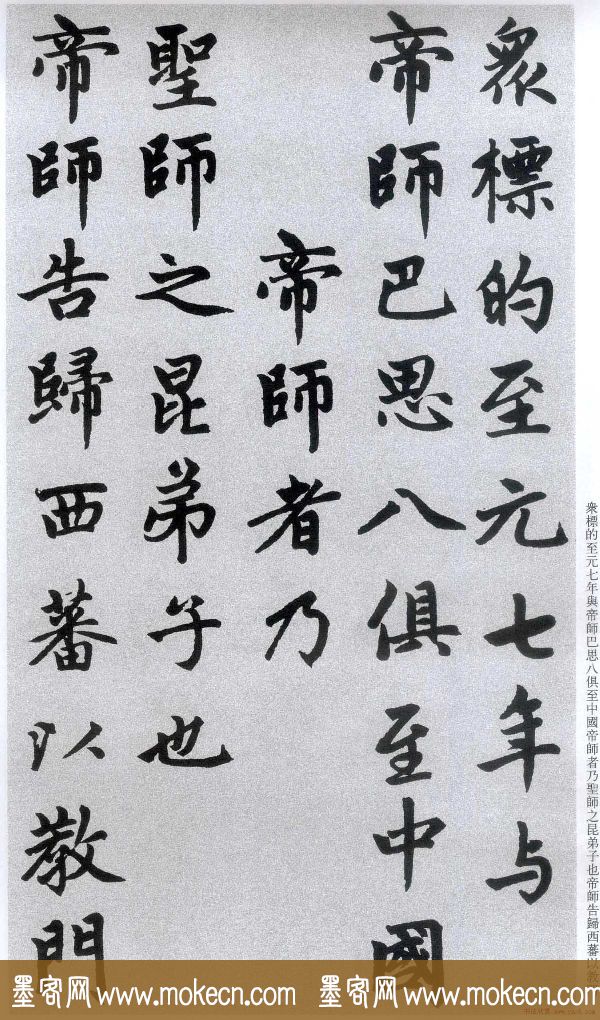 衆標的至元七年与
帝師巴思八俱至中國
帝師者乃
聖師之昆弟子也
帝師告歸西蕃以教門
衆標的至元七年與帝師巴思八俱至中國帝師者乃聖師之昆弟子也帝師告歸西蕃以教
墨客网 www.mokecn.com 墨客网 www.mokecn.com